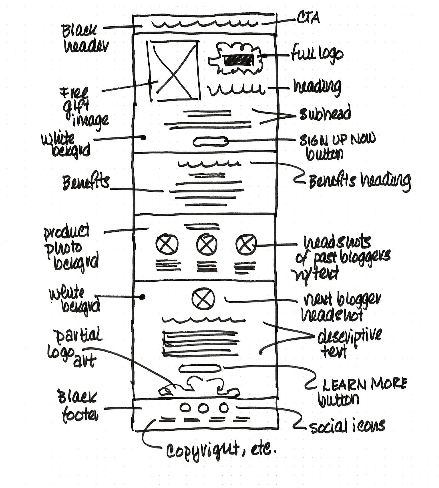 CTA
Black
header
full logo
heading
Free
gift
image
subhead
white
bckgrd
SIGN UP NOW
button
Benefits
Benefits heading
product
photo
bckgrd
headshots
of past bloggers
w/text
white
bckgrd
next blogger
headshot
partial
logo
art
descriptive
text
LEARN MORE
button
Black
footer
social icons
copyright, etc.